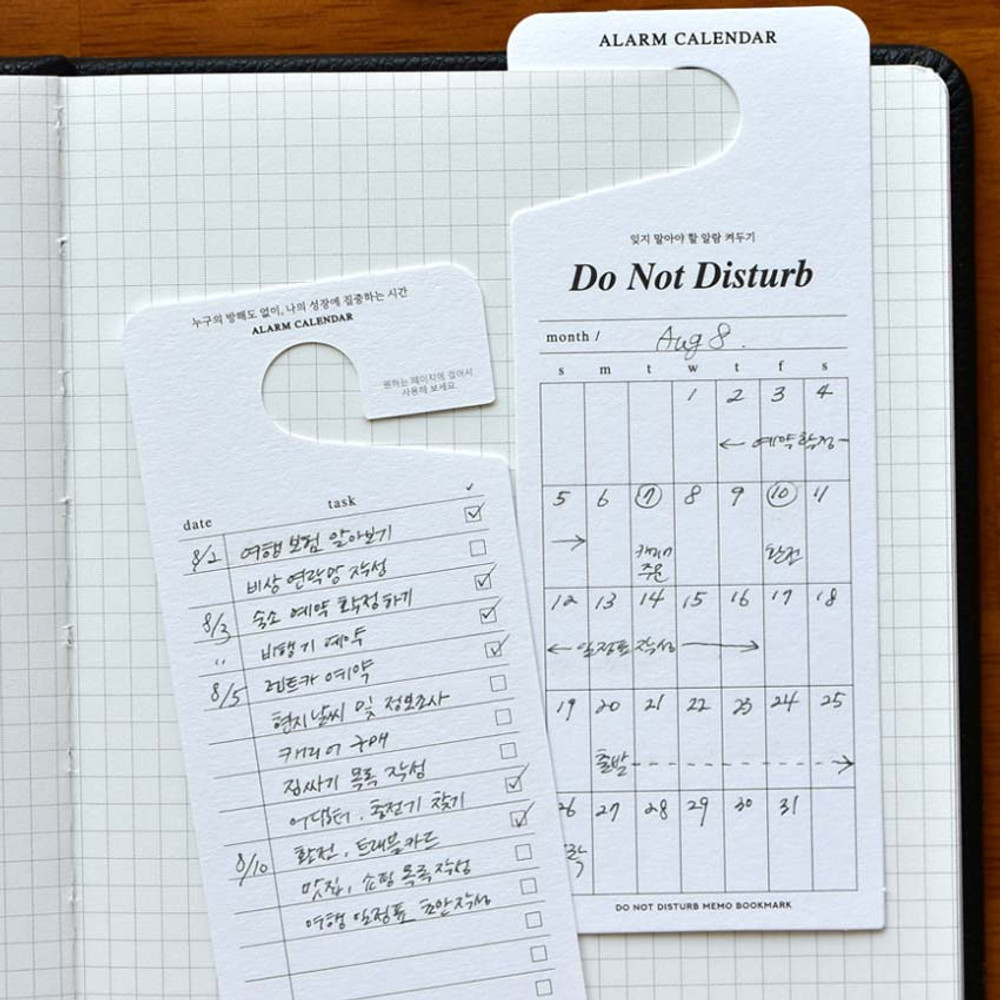 누구의 방해도 없이, 나의 성장에 집중하는 시간
ALARM CALENDAR
원하는 페이지에 걸어서
사용해 보세요.
date task ✓
8/2 여행 보험 알아보기 ☑
비상 연락망 작성 ☐
8/3 숙소 예약 확정하기 ☑
〃 비행기 예약 ☑
8/5 렌트카 예약 ☑
현지날씨 및 정보조사 ☐
캐리어 구매 ☐
짐싸기 목록 작성 ☐
어댑터, 충전기 찾기 ☑
8/10 환전, 트래블카드 ☑
맛집, 쇼핑 목록 작성 ☐
여행 일정표 초안작성 ☐
ALARM CALENDAR
잊지 말아야 할 알람 켜두기
Do Not Disturb
month / Aug 8.
s m t w t f s
1 2 3 4
← 예약확정-
5 6 7 8 9 10 11
→ 캐리어 환전
주문
12 13 14 15 16 17 18
← 일정표 작성 →
19 20 21 22 23 24 25
출발 - - - →
26 27 28 29 30 31
DO NOT DISTURB MEMO BOOKMARK